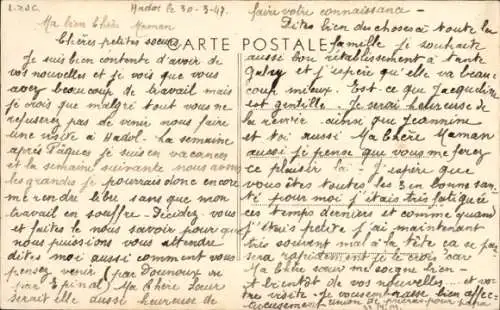 Hadol le 30-3-47.
Ma bien Chère Maman
Chères petites sœurs
CARTE POSTALE
Je suis bien contente d'avoir de
vos nouvelles et je vois que vous
avez beaucoup de travail mais
je crois que malgré tout vous ne
refuserez pas de venir nous faire
une visite à Hadol. La semaine
après Pâques je suis en vacances
et la semaine suivante nous avons
les grands je pourrais donc encore
me rendre libre sans que mon
travail en souffre - Décidez-vous
et faites le nous savoir pour que
nous puissions vous attendre
dites moi aussi comment vous
pensez venir (par Dounoux ou
par Epinal) Ma Chère Sœur
serait elle aussi heureuse de
faire votre connaissance -
Dites bien des choses à toute la
famille je souhaite
aussi bon rétablissement à tante
et j'espère qu'elle va beau
coup mieux. Est-ce que Jacqueline
est gentille. Je serai heureuse de
la revoir ainsi que Jeannine
et toi aussi Ma Chère Maman
aussi je pense que vous me ferez
ce plaisir là! j'espère que
vous êtes toutes les 3 en bonne san-
té pour moi j'étais très fatiguée
ces temps derniers et comme quand
j'étais petite j'ai maintenant
très souvent mal à la tête ça se pas
sera rapidement je le crois car
Ma Chère sœur me soigne bien -
A bientôt de vos nouvelles .... et vo
tre visite - Je vous embrasse bien affec-
tueusement union de prières pour papa